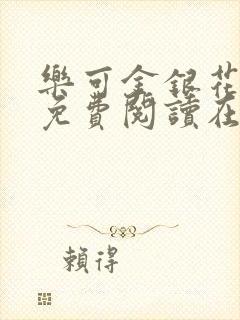 樂可金銀花
免費閱讀在
賴得